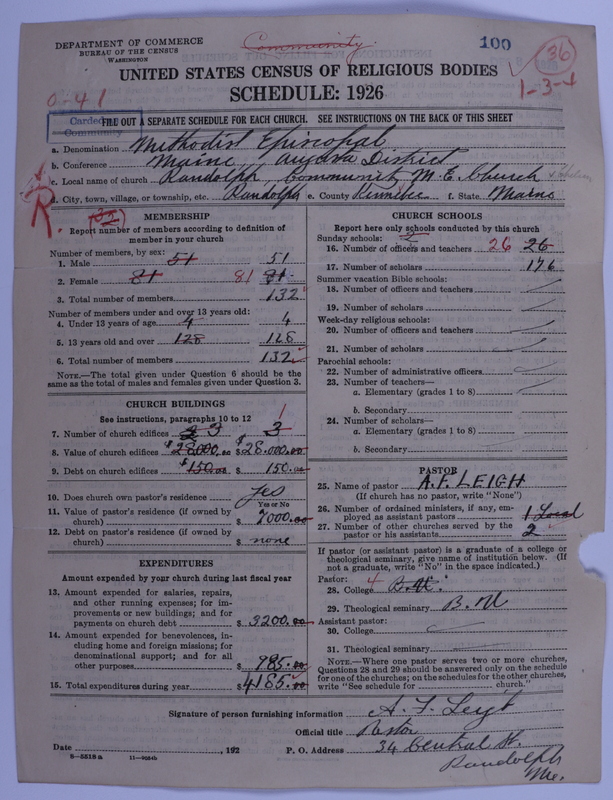 DEPARTMENT OF COMMERCE
BUREAU OF THE CENSUS
WASHINGTON
Community
100
36
1-3-4
UNITED STATES CENSUS OF RELIGIOUS BODIES
SCHEDULE: 1926
0-41
Carded
Community
FILL OUT A SEPARATE SCHEDULE FOR EACH CHURCH. SEE INSTRUCTIONS ON THE BACK OF THIS SHEET
a. Denomination Methodist Episcopal
b. Conference Maine Augusta District
c. Local name of church Randolph Community M. E. Church
d. City, town, village, or township, etc. Randolph e. County Kennebec f. State Maine
R.
MEMBERSHIP
Report number of members according to definition of member in your church
Number of members, by sex:
1. Male 51 51
2. Female 81 81 81
3. Total number of members 132
Number of members under and over 13 years old:
4. Under 13 years of age 4 4
5. 13 years old and over 128 128
6. Total number of members 132
NOTE.—The total given under Question 6 should be the same as the total of males and females given under Question 3.
CHURCH BUILDINGS
See instructions, paragraphs 10 to 12
1
7. Number of church edifices 3 3
8. Value of church edifices $28000.00 $28.000.00
9. Debt on church edifices $150.00 $150.00
10. Does church own pastor's residence Yes
Yes or No
11. Value of pastor's residence (if owned by church) $7000.00
12. Debt on pastor's residence (if owned by church) $ none
EXPENDITURES
Amount expended by your church during last fiscal year
13. Amount expended for salaries, repairs, and other running expenses; for improvements or new buildings; and for payments on church debt $3200.00
14. Amount expended for benevolences, including home and foreign missions; for denominational support; and for all other purposes $985.00
15. Total expenditures during year $4185.00
CHURCH SCHOOLS
Report here only schools conducted by this church
Sunday schools: 2
16. Number of officers and teachers 26 26
17. Number of scholars 176
Summer vacation Bible schools:
18. Number of officers and teachers
19. Number of scholars
Week-day religious schools:
20. Number of officers and teachers
21. Number of scholars
Parochial schools:
22. Number of administrative officers
23. Number of teachers—
a. Elementary (grades 1 to 8)
b. Secondary
24. Number of scholars—
a. Elementary (grades 1 to 8)
b. Secondary
PASTOR
25. Name of pastor A. F. LEIGH
(If church has no pastor, write "None")
26. Number of ordained ministers, if any, employed as assistant pastors 1 Local
27. Number of other churches served by the pastor or his assistants 2
If pastor (or assistant pastor) is a graduate of a college or theological seminary, give name of institution below. (If not a graduate, write "No" in the space indicated.)
Pastor:
28. College 4 B.U.
29. Theological seminary B. U
Assistant pastor:
30. College
31. Theological seminary
NOTE.—Where one pastor serves two or more churches, Questions 28 and 29 should be answered only on the schedule for one of the churches; on the schedules for the other churches, write "See schedule for church."
Signature of person furnishing information A. F. Leigh
Official title Pastor
Date , 192 P. O. Address 34 Central St.
Randolph
Me.
8-5519 a 11-9024b